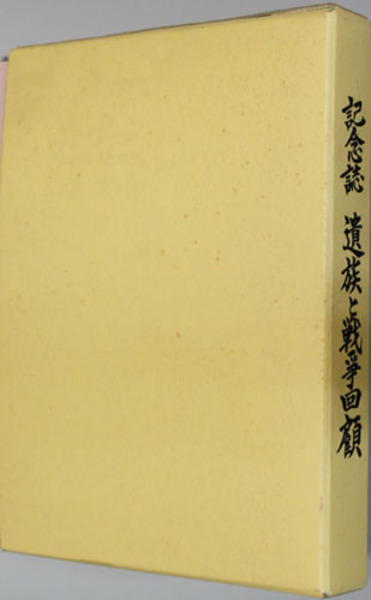 記念誌 遺族と戦争回顧